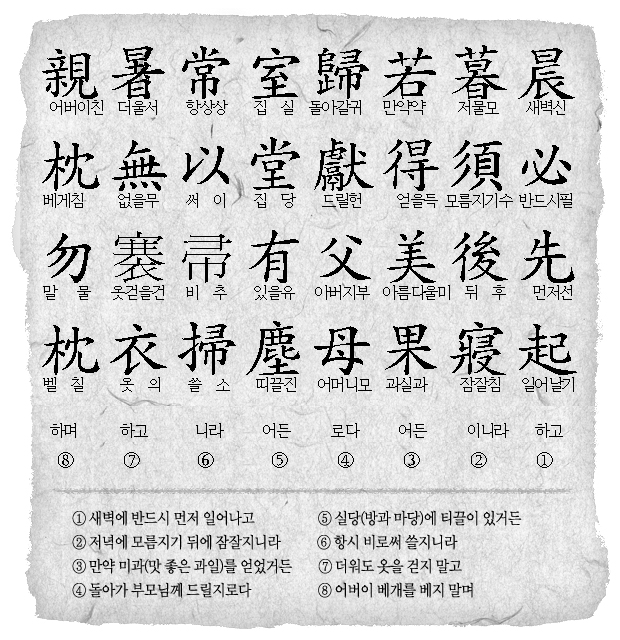 晨 새벽신 必 반드시필 先 먼저선 起 일어날기 하고 ①
暮 저물모 須 모름지기수 後 뒤 후 寢 잠잘침 이니라 ②
若 만약약 得 얻을득 美 아름다울미 果 과실과 어든 ③
歸 돌아갈귀 獻 드릴헌 父 아버지부 母 어머니모 로다 ④
室 집 실 堂 집 당 有 있을유 塵 띠끌진 어든 ⑤
常 항상상 以 써 이 帚 비 추 掃 쓸 소 니라 ⑥
暑 더울서 無 없을무 褰 옷걷을건 衣 옷 의 하고 ⑦
親 어버이친 枕 베게침 勿 말 물 枕 벨 칠 하며 ⑧
① 새벽에 반드시 먼저 일어나고
② 저녁에 모름지기 뒤에 잠잘지니라
③ 만약 미과(맛 좋은 과일)를 얻었거든
④ 돌아가 부모님께 드릴지로다
⑤ 실당(방과 마당)에 티끌이 있거든
⑥ 항시 비로써 쓸지니라
⑦ 더워도 옷을 걷지 말고
⑧ 어버이 베개를 베지 말며